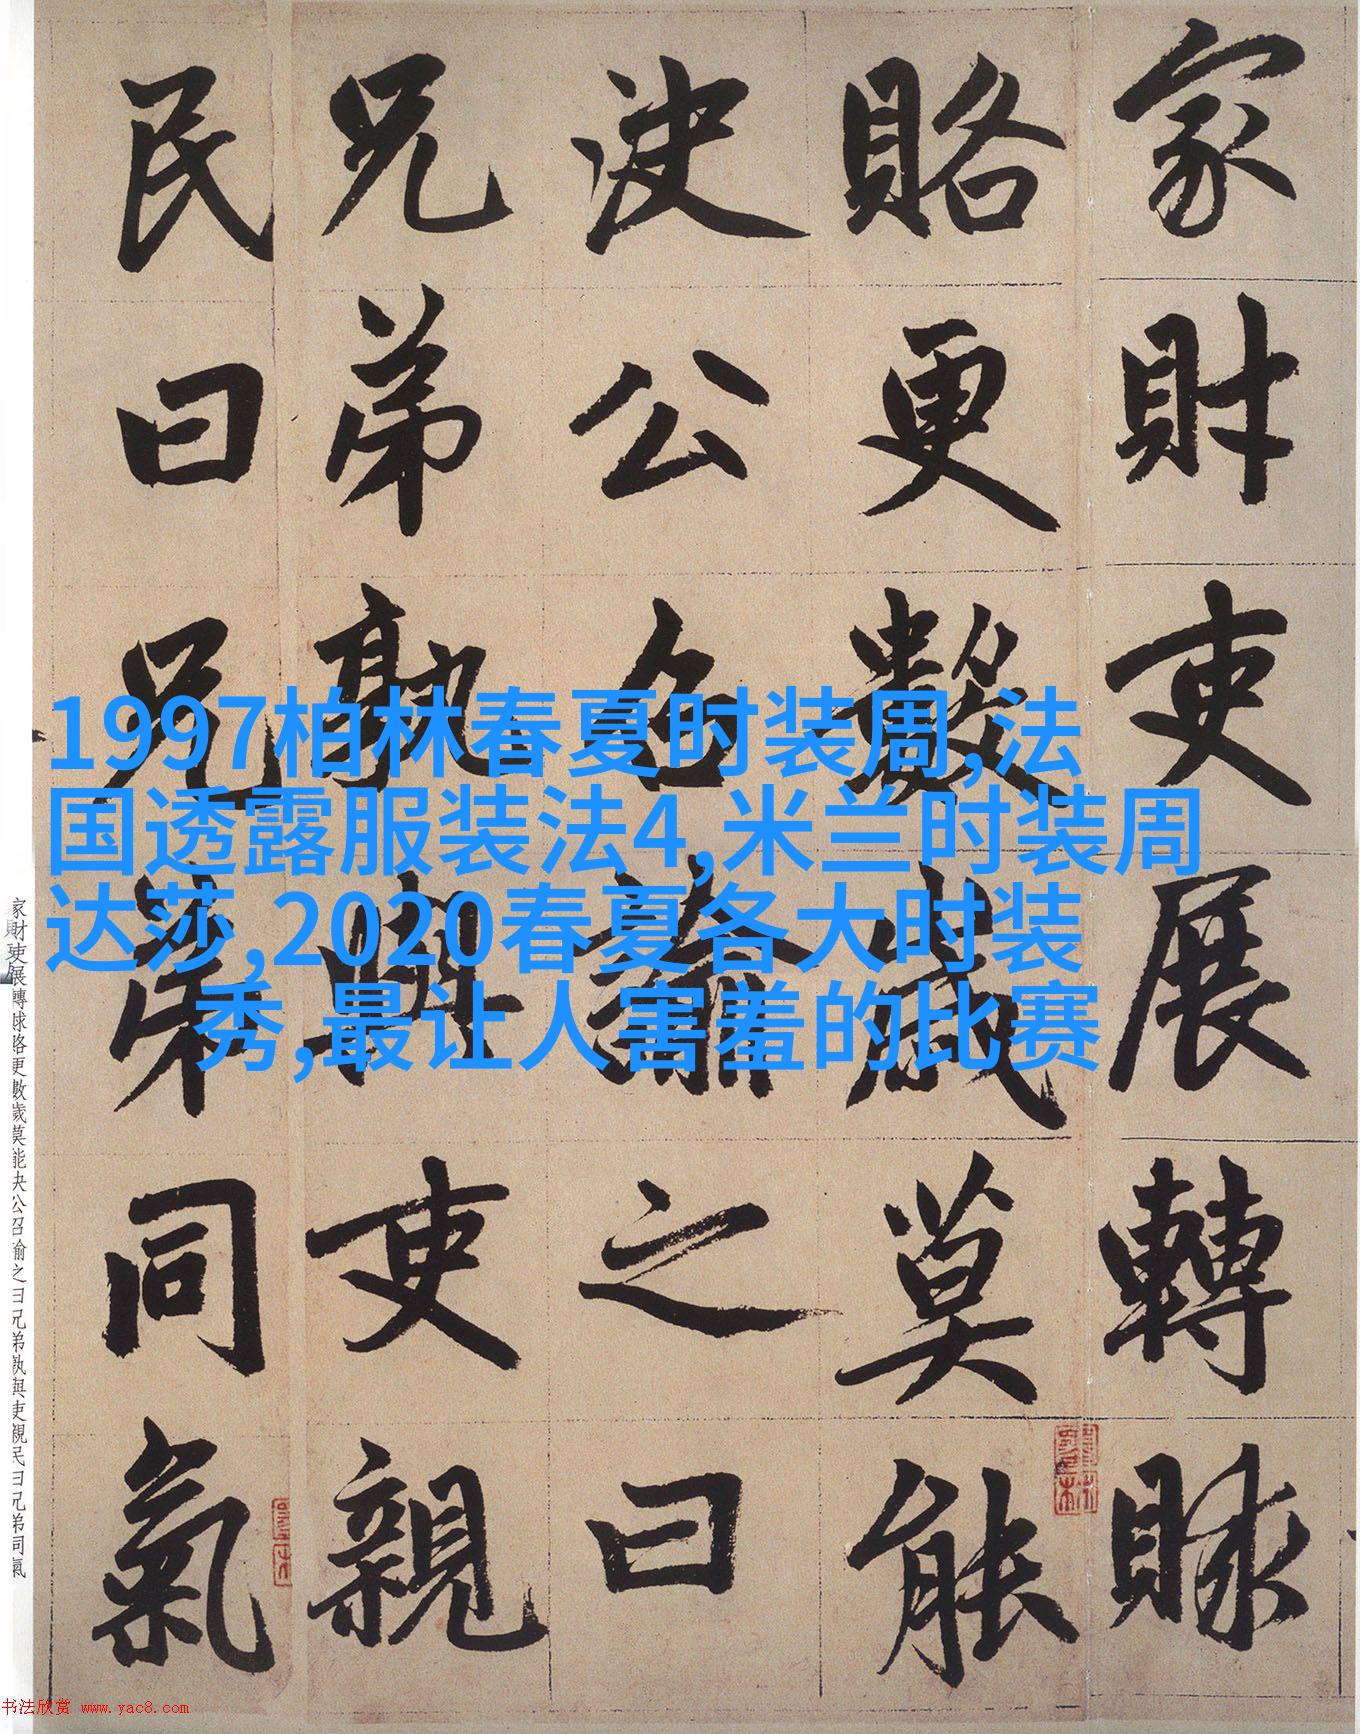 家財吏展轉賕
賂更數歲莫能
決公召諭之曰
兄弟孰與吏親
民曰兄弟同氣
1997柏林春夏时装周,法
国透露服装法4,米兰时装周
达莎,2020春夏各大时装
秀,最让人害羞的比赛
家財吏展轉賕賂更數歲莫能决公召諭之曰兄弟孰與吏親民曰兄弟同氣
书法欣赏 www.yac8.com